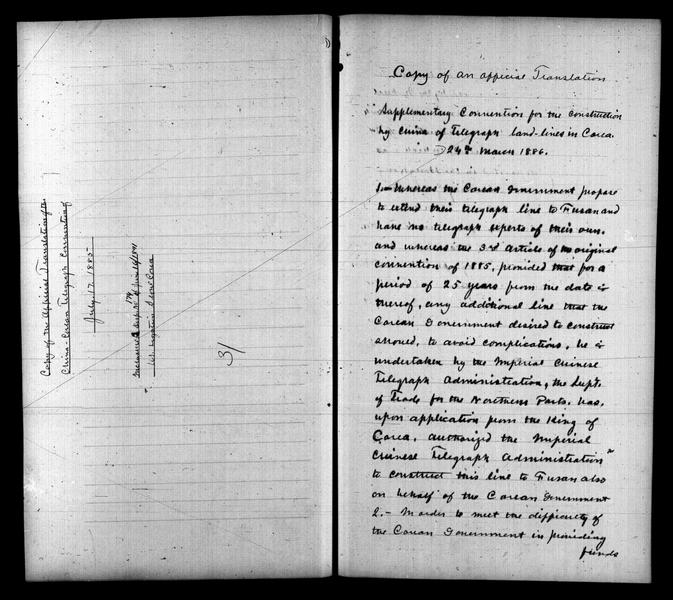 Copy of the Official Translation of the
China-Corean Telegraph Convention of
July 17. 1885
Inclosure 2 desp. No 174 of June 19/1891
U.S. Legation Seoul Corea
31
Copy of an official Translation
Supplementary Convention for the construction
by China of Telegraph land-lines in Corea.
24th March 1886.
1.- Whereas the Corean Government propose
to extend their telegraph line to Fusan and
have no telegraph experts of their own.
and whereas the 3rd article of the original
convention of 1885, provided that for a
period of 25 years from the date
thereof, any additional line that the
Corean Government desired to construct
should, to avoid complications, be
undertaken by the Imperial Chinese
Telegraph Administration, the Supt.
of Trade for the Northern Ports, has,
upon application from the King of
Corea, authorized the Imperial
Chinese Telegraph Administration
to construct this line to Fusan also
on behalf of the Corean Government
2.- In order to meet the difficulty of
the Corean Government in providing
funds